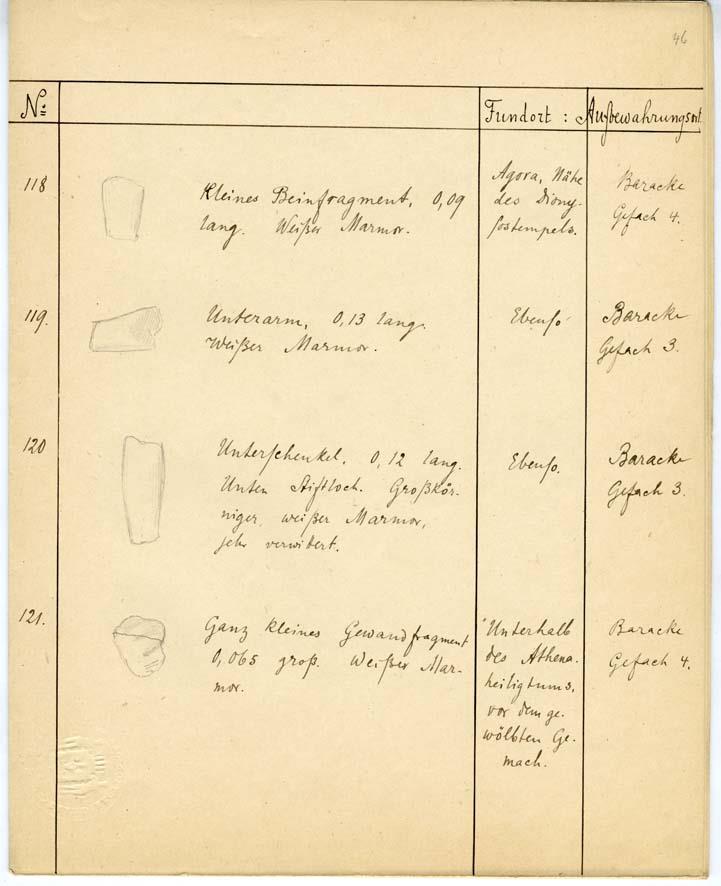 46
Nº
Fundort :
Aufbewahrungsort
118
Kleines Beinfragment, 0,09
lang. Weißer Marmor.
Agora, Nähe
des Diony-
sostempels.
Baracke
Gefach 4.
119.
Unterarm, 0,13 lang.
Weißer Marmor.
Ebenso
Baracke
Gefach 3.
120
Unterschenkel, 0,12 lang.
Unten Stiftloch. Großkör-
niger, weißer Marmor,
sehr verwittert.
Ebenso.
Baracke
Gefach 3.
121.
Ganz kleines Gewandfragment
0,065 groß. Weißer Mar-
mor.
Unterhalb
des Athena-
heiligtums,
vor dem ge-
wölbten Ge-
mach.
Baracke
Gefach 4.